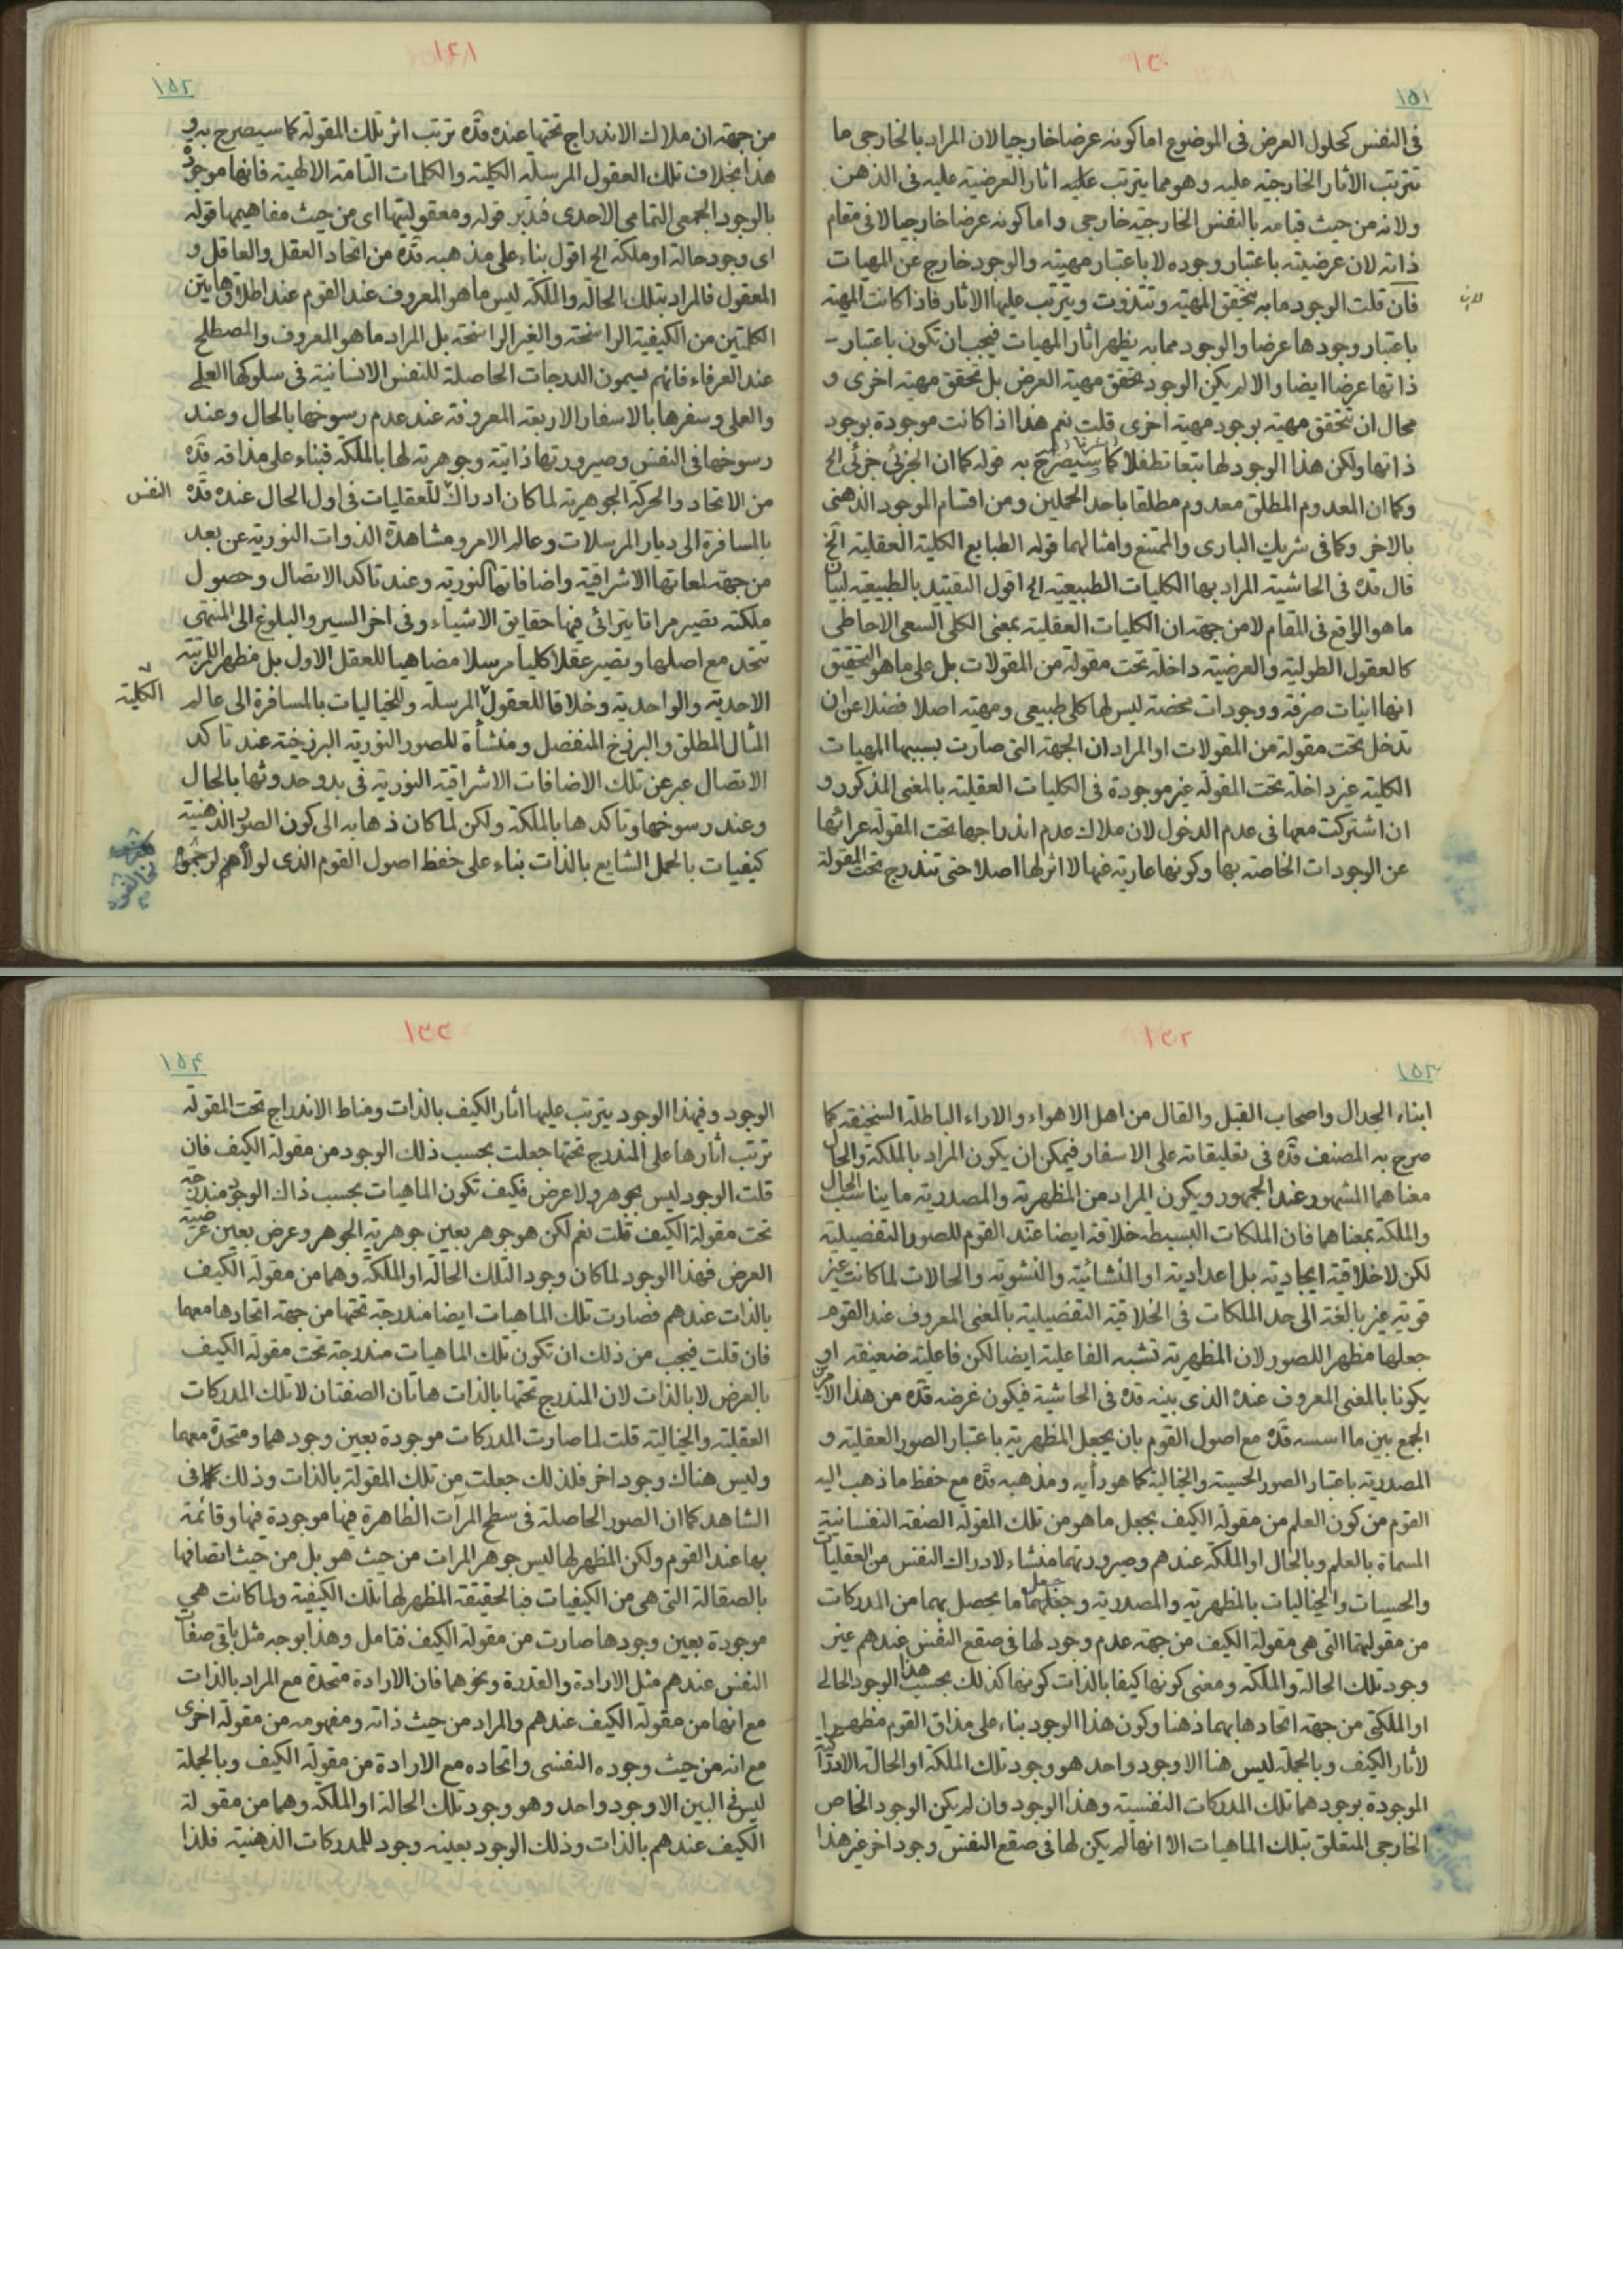 ١٣٠
١٥١
فى النفس كحلول العرض فى الموضوع اما كونه عرضا خارجيا لان المراد بالخارجى ما
تترتب الاثار الخارجيّه عليه وهو مما يترتب عليه اثار العرضيّة عليه فى الذهن
ولانه من حيث قيامه بالنفس الخارجيّه خارجى واما كونه عرضا خارجيا لا فى مقام
ذاته لان عرضيّته باعتبار وجوده لا باعتبار مهيته والوجود خارج عن المهيات
فان قلت الوجود ما به تتحقق المهيّه وتتذوت ويترتب عليها الاثار فاذا كانت المهيّه
باعتبار وجودها عرضا والوجود مما به يظهر اثار المهيات فيجب ان تكون باعتبار
ذاتها عرضا ايضا والا لم يكن الوجود تحقق مهية العرض بل تحقق مهية اخرى و
محال ان تتحقق مهيّه بوجود مهيّه اخرى قلت نعم هذا اذا كانت موجودة بوجود
ذاتها ولكن هذا الوجود لها تبعا تطفلا كما سيصرّح به قوله كما ان الجزئى جزئى الخ
وكما ان المعدوم المطلق معدوم مطلقا باحد الحملين ومن اقسام الموجود الذهنى
بالاخر وكما فى شريك البارى والممتنع وامثالهما قوله الطبايع الكلية العقلية الخ
قال قده فى الحاشية المراد بها الكليات الطبيعيّه الخ اقول التقييد بالطبيعيّه لبيان
ما هو الواقع فى المقام لا من جهة ان الكليات العقلية بمعنى الكلى السعى الاحاطى
كالعقول الطولية والعرضية داخلة تحت مقولة من المقولات بل على ما هو التحقيق
انها انيات صرفة ووجودات محضة ليس لها كلى طبيعى ومهية اصلا فضلا عن ان
تدخل تحت مقولة من المقولات او المراد ان الجهة التى صارت بسببها المهيات
الكلية غير داخلة تحت المقوله غير موجودة فى الكليات العقلية بالمعنى المذكور و
ان اشتركت معها فى عدم الدخول لان ملاك عدم اندراجها تحت المقوله عرائها
عن الوجودات الخاصه بها وكونها عارية عنها لا اثر لها اصلا حتى تندرج تحت المقولة
١٣١
١٥٢
من جهة ان ملاك الاندراج تحتها عنده قدّه ترتب اثر تلك المقوله كما سيصرح به و
هذا بخلاف تلك العقول المرسلة الكلية والكلمات التامة الالهية فانها موجودة
بالوجود الجمعى التمامى الاحدى فتدبّر قوله ومعقوليتها اى من حيث مفاهيمها قوله
اى وجود حالة او ملكة الخ اقول بناء على مذهبه قدّه من اتحاد العقل والعاقل و
المعقول فالمراد بتلك الحالة والملكة ليس ما هو المعروف عند القوم عند اطلاق هاتين
الكلمتين من الكيفية الراسخة والغير الراسخة بل المراد ما هو المعروف والمصطلح
عند العرفاء فانهم يسمون الدرجات الحاصلة للنفس الانسانية فى سلوكها العلمى
والعملى وسفرها بالاسفار الاربعه المعروفة عند عدم رسوخها بالحال وعند
رسوخها فى النفس وصيرورتها ذاتية وجوهرية لها بالملكة فبناء على مذاقه قدّه
من الاتحاد والحركة الجوهرية لما كان ادراك للعقليات فى اول الحال عنده قدّه
النفس
بالمسافرة الى ديار المرسلات وعالم الامر ومشاهدة الذوات النورية عن بعد
من جهة لمعاتها الاشراقية واضافاتها النورية وعند تاكد الاتصال وحصول
ملكته تصير مراتا يترائى فيها حقايق الاشياء وفى اخر السير والبلوغ الى المنتهى
تتحد مع اصلها وتصير عقلا كليا مرسلا مضاهيا للعقل الاول بل مظهر المرتبة
الاحدية والواحدية وخلاقا للعقول المرسلة وللخياليات بالمسافرة الى عالم
الكلية
المثال المطلق والبرزخ المنفصل ومنشأة للصور النورية البرزخية عند تاكد
الاتصال عبر عن تلك الاضافات الاشراقية النورية فى بدو حدوثها بالحال
وعند رسوخها وتاكدها بالملكة ولكن لما كان ذهابه الى كون الصور الذهنية
كيفيات بالحمل الشايع بالذات بناء على حفظ اصول القوم الذى لولاهم
١٣٢
١٥٣
ابناء الجدال واصحاب القيل والقال من اهل الاهواء والاراء الباطلة السخيفه كما
صرح به المصنف قدّه فى تعليقاته على الاسفار فيمكن ان يكون المراد بالملكة والحال
معناهما المشهور عند الجمهور ويكون المراد من المظهرية والمصدرية ما يناسب الحال
والملكة بمعناهما فان الملكات البسيطه خلاقة ايضا عند القوم للصور التفصيلية
لكن لا خلاقية ايجادية بل اعدادية او المنشائية والنشوية والحالات لما كانت غير
قوية غير بالغة الى حد الملكات فى الخلاقية التفصيلية بالمعنى المعروف عند القوم
جعلها مظهرا للصور لان المظهرية تشبه الفاعلية ايضا لكن فاعلية ضعيفه او
يكونا بالمعنى المعروف عنده الذى بينه قده فى الحاشية فيكون غرضه قدّه من هذا الامر
الجمع بين ما اسسه قدّه مع اصول القوم بان يجعل المظهرية باعتبار الصور العقلية و
المصدرية باعتبار الصور الحسية والخيالية كما هو رأيه ومذهبه قدّه مع حفظ ما ذهب اليه
القوم من كون العلم من مقولة الكيف بجعل ما هو من تلك المقوله الصفة النفسانية
المسماة بالعلم وبالحال او الملكة عندهم وصيرورتهما منشاء لادراك النفس من العقليات
والحسيات والخياليات بالمظهرية والمصدرية وجعلهما ما يحصل بهما من المدركات
من مقولتهما التى هى مقولة الكيف من جهة عدم وجود لها فى صقع النفس عندهم غير
وجود تلك الحالة والملكة ومعنى كونها كيفا بالذات كونها كذلك بحسب هذا الوجود الحالى
او الملكتى من جهة اتحادها بهما ذهنا وكون هذا الوجود بناء على مذاق القوم مظهرا
لاثار الكيف وبالجملة ليس هنا الا وجود واحد هو وجود تلك الملكة او الحالة الادراكية
الموجودة بوجودهما تلك المدركات النفسية وهذا الوجود وان لم يكن الوجود الخاص
الخارجى المتعلق بتلك الماهيات الا انها لم يكن لها فى صقع النفس وجود اخر غير هذا
١٣٣
١٥٤
الوجود وفى هذا الوجود يترتب عليها اثار الكيف بالذات ومناط الاندراج تحت المقوله
ترتب اثارها على المندرج تحتها جعلت بحسب ذلك الوجود من مقولة الكيف فان
قلت الوجود ليس بجوهر ولا عرض فكيف تكون الماهيات بحسب ذاك الوجود مندرجة
تحت مقولة الكيف قلت نعم لكن هو جوهر بعين جوهرية الجوهر وعرض بعين عرضية
العرض فهذا الوجود لما كان وجود التلك الحالة او الملكة وهما من مقولة الكيف
بالذات عندهم فصارت تلك الماهيات ايضا مندرجة تحتها من جهة اتحادها معهما
فان قلت فيجب من ذلك ان تكون تلك الماهيات مندرجة تحت مقولة الكيف
بالعرض لا بالذات لان المندرج تحتها بالذات هاتان الصفتان لا تلك المدركات
العقلية والخيالية قلت لما صارت المدركات موجودة بعين وجودهما ومتحدة معهما
وليس هناك وجود اخر فلذلك جعلت من تلك المقولة بالذات وذلك كما فى
الشاهد كما ان الصور الحاصلة فى سطح المرآت الظاهرة فيها موجودة فيها وقائمة
بها عند القوم ولكن المظهر لها ليس جوهر المرات من حيث هو بل من حيث اتصافها
بالصقالة التى هى من الكيفيات فبالحقيقة المظهر لها تلك الكيفية ولما كانت هى
موجودة بعين وجودها صارت من مقولة الكيف فتامل وهذا بوجه مثل باقى صفات
النفس عندهم مثل الارادة والقدرة ونحوهما فان الارادة متحدة مع المراد بالذات
مع انها من مقولة الكيف عندهم والمراد من حيث ذاته ومفهومه من مقولة اخرى
مع انه من حيث وجوده النفسى واتحاده مع الارادة من مقولة الكيف وبالجملة
ليس فى البين الا وجود واحد وهو وجود تلك الحالة او الملكة وهما من مقولة
الكيف عندهم بالذات وذلك الوجود بعينه وجود للمدركات الذهنية فلذا